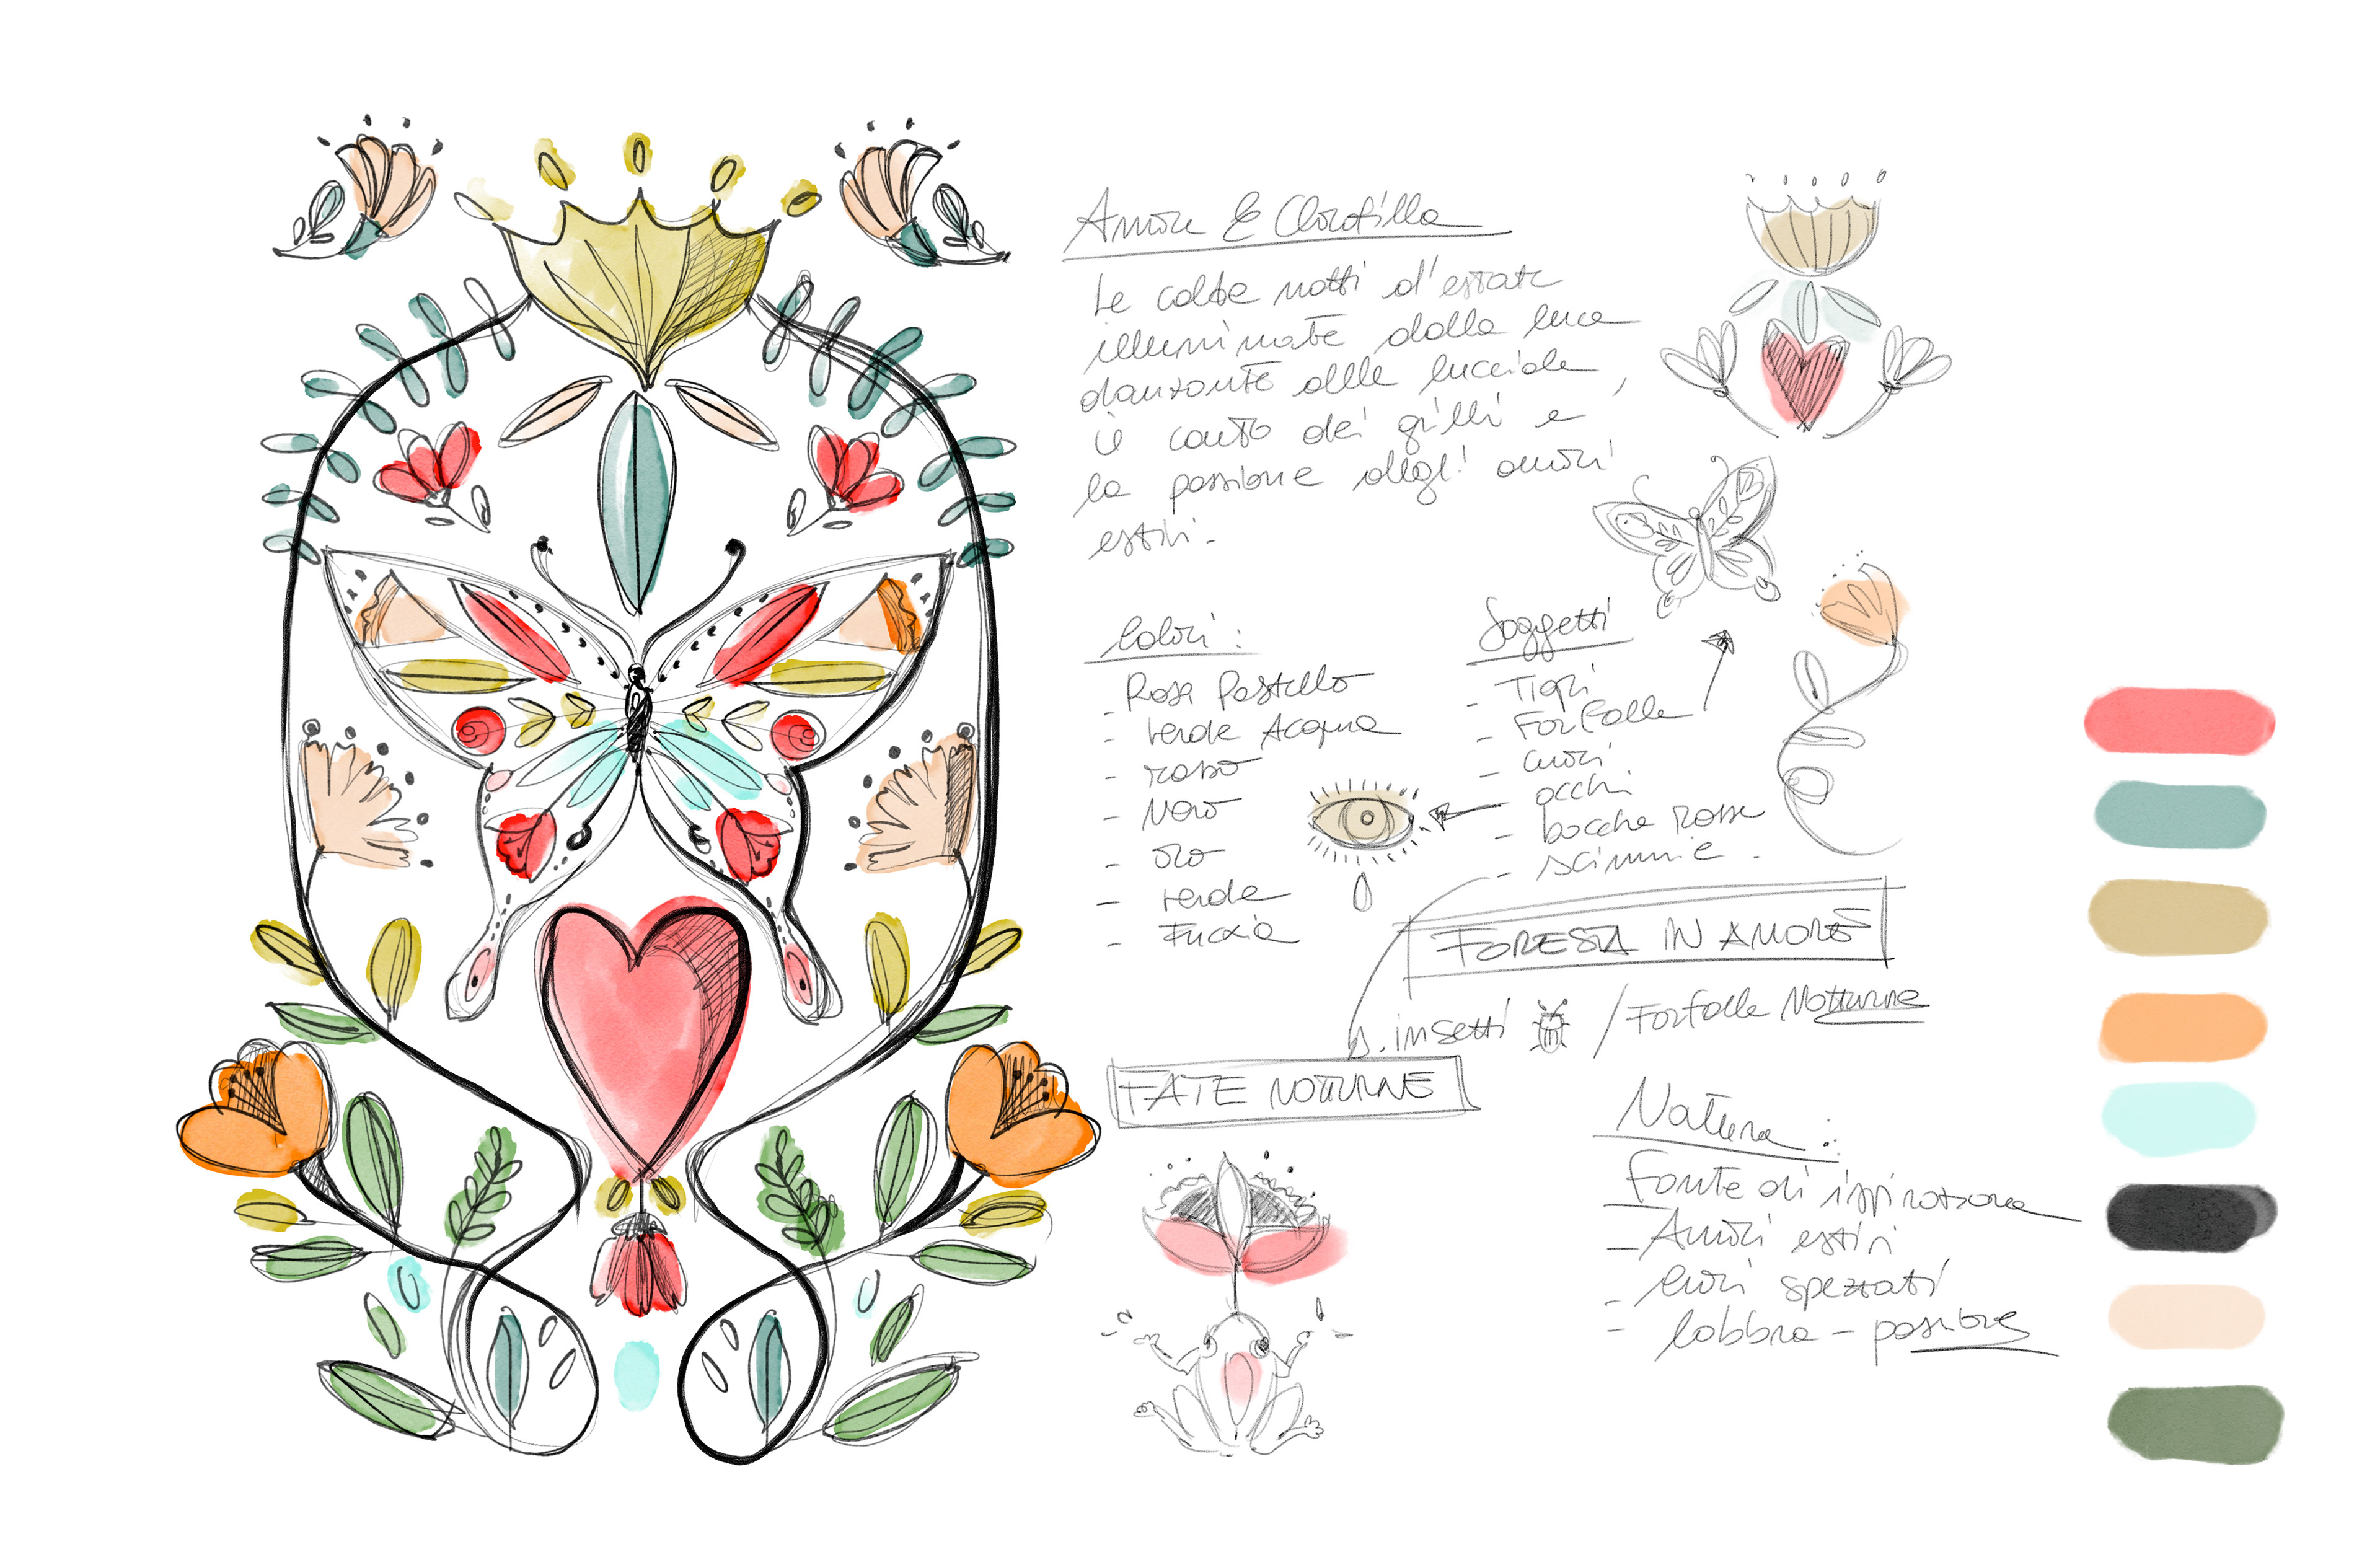 Amore & Clorofilla
Le calde notti d'estate
illuminate dalla luce
danzante delle lucciole,
il canto dei grilli e
la passione degli amori
estivi.
Colori:
- Rosa Pastello
- Verde Acqua
- rosso
- Nero
- oro
- verde
- Fuxia
Soggetti
- Tigri
- Farfalle
- cuori
occhi
- bocche rosse
- scimmie.
FORESTA IN AMORE
insetti / Farfalle Notturne
FATE NOTTURNE
Natura:
Fonte di ispirazione
- Amori estivi
- cuori spezzati
- labbra - passione